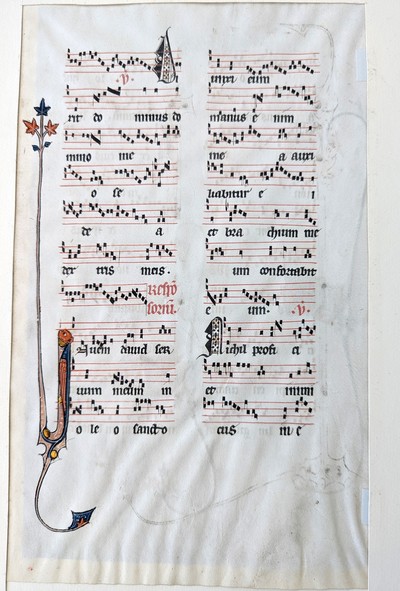 ℣. D
ixit do minus do
mino me
o se
de a
dex tris meis.
Respō
soriū.
Inueni dauid ser
uum meum in
o le o sancto
unxi eum
manus e nim
me a auxi
liabitur e i
et bra chium me
um confortabit
e um. ℣.
Nichil profi ci
et inimi
cus in e